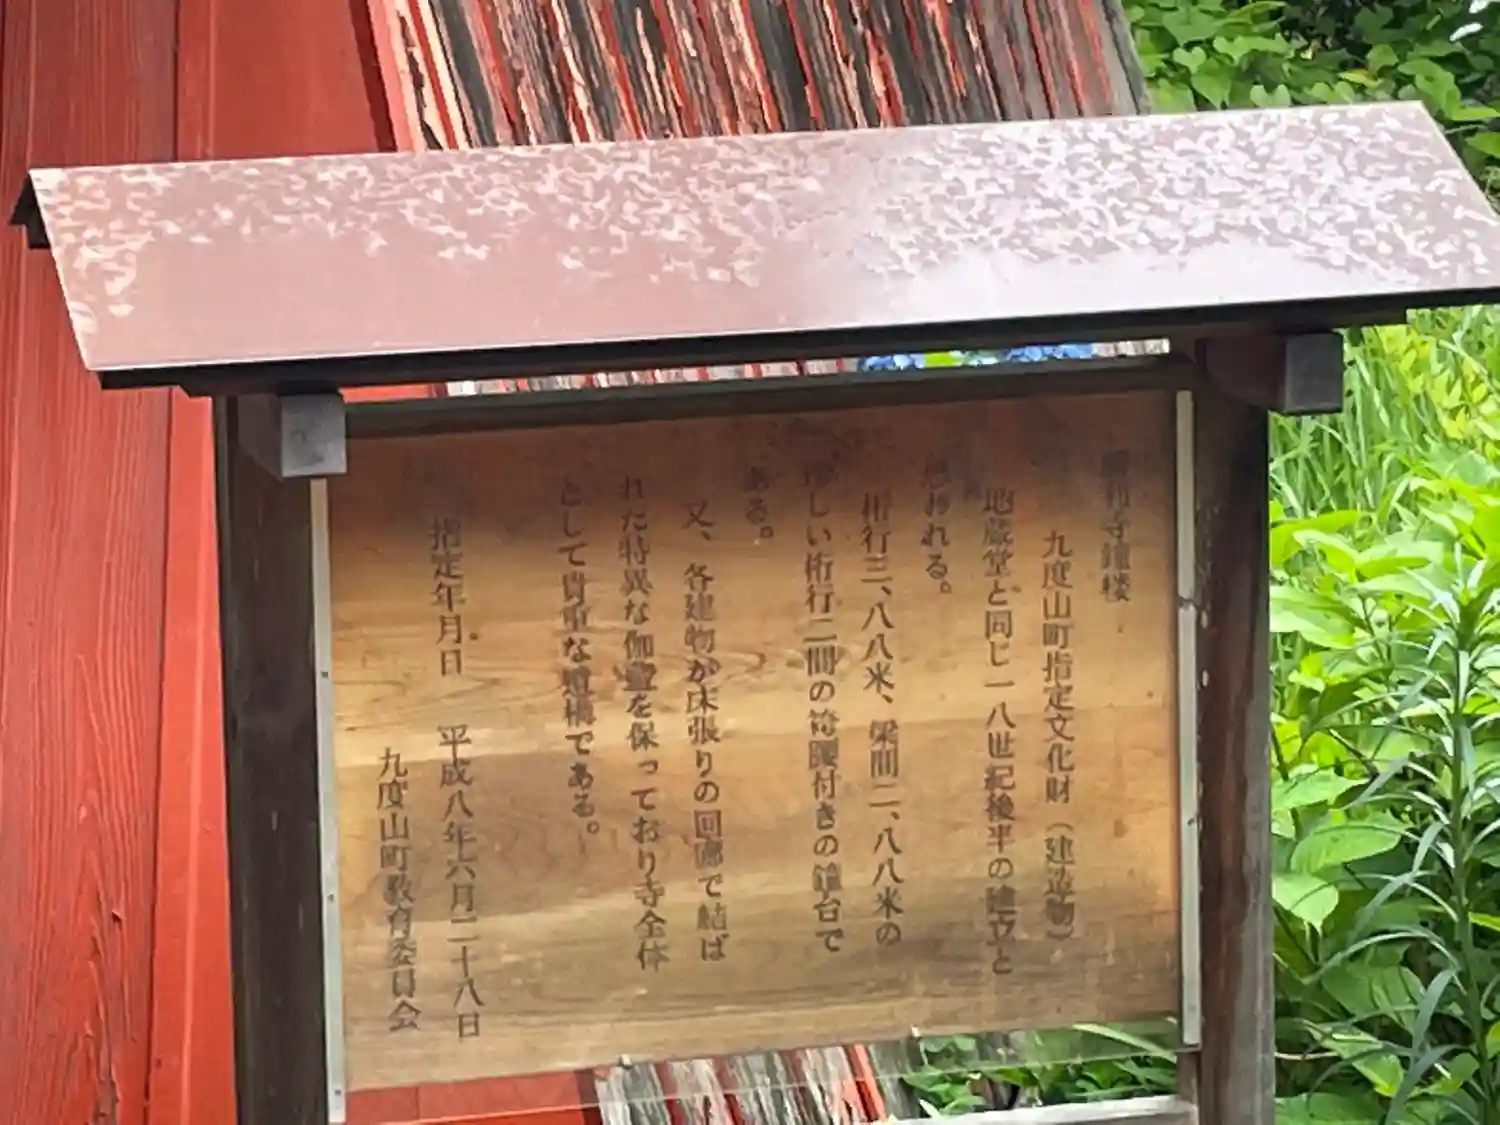 勝利寺鐘楼
九度山町指定文化財（建造物）
地蔵堂と同じ一八世紀後半の建立と
思われる。
桁行三、八八米、梁間二、八八米の
珍しい桁行二間の袴腰付きの鐘台で
ある。
又、各建物が床張りの回廊で結ば
れた特異な伽藍を保っており寺全体
として貴重な遺構である。
指定年月日　平成八年六月二十八日
九度山町教育委員会